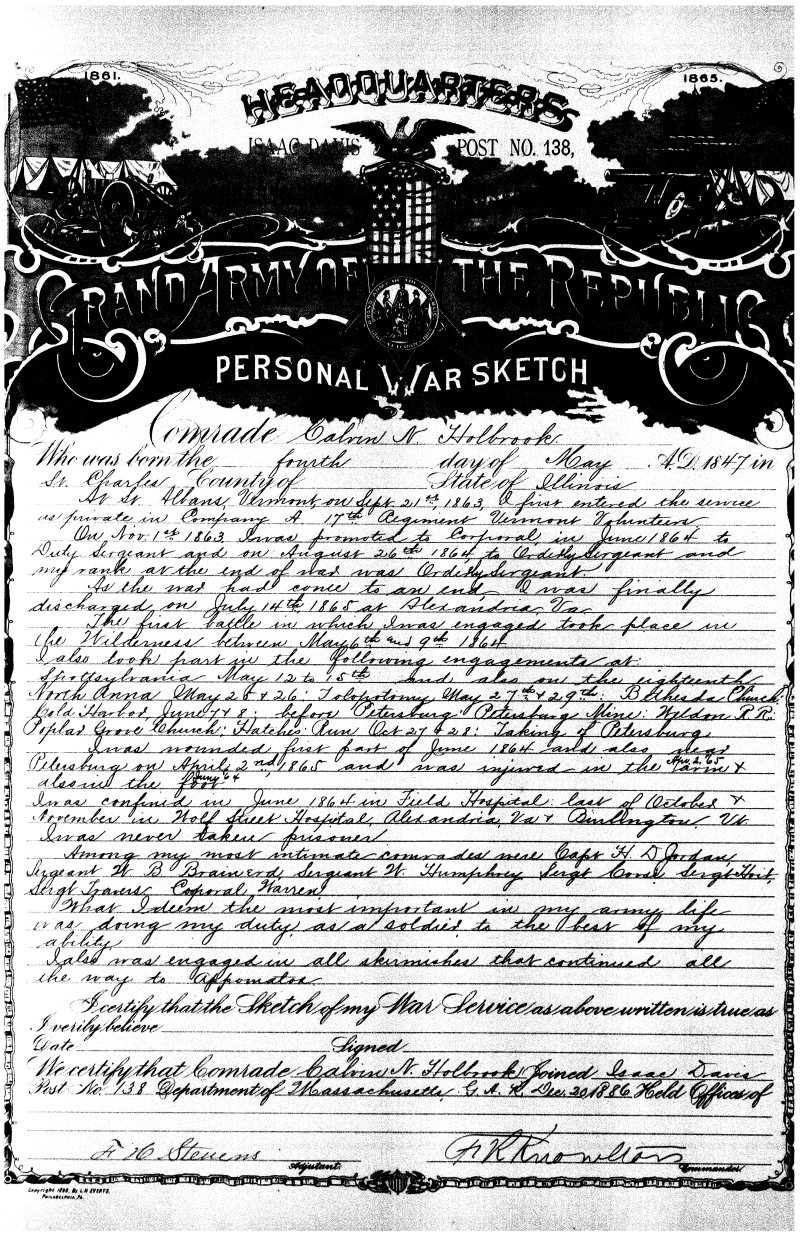 1861.
1865.
HEADQUARTERS
ISAAC DAVIS POST NO. 138,
GRAND ARMY OF THE REPUBLIC
PERSONAL WAR SKETCH
Comrade Calvin N. Holbrook
Who was born the fourth day of May A.D. 1847 in
St. Charles County of State of Illinois
At St. Albans, Vermont, on Sept 21st, 1863, I first entered the service
as private in Company A 17th Regiment Vermont Volunteers.
On Nov. 1st 1863 I was promoted to Corporal, in June 1864 to
Duty Sergeant and on August 26th 1864 to Orderly Sergeant and
my rank at the end of war was Orderly Sergeant.
As the war had come to an end, I was finally
discharged, on July 14th, 1865 at Alexandria, Va.
The first battle in which I was engaged took place in
the Wilderness between May 6th and 9th 1864
I also took part in the following engagements at:
Spottsylvania May 12 to 15th and also on the eighteenth
North Anna May 25 & 26: Tolopotomy May 27th & 29th: Bethesda Church:
Cold Harbor, June 7 & 8: before Petersburg: Petersburg Mine: Weldon R.R:
Poplar Grove Church: Hatches Run Oct 27 & 28: Taking of Petersburg
I was wounded first part of June 1864 and also near
Petersburg on April 2nd, 1865 and was injured in the arm Apr. 2, 65 &
also in the foot June 64
I was confined in June 1864 in Field Hospital: last of October &
November in Wolf Street Hospital, Alexandria, Va & Burlington Vt.
I was never taken prisoner
Among my most intimate comrades were Capt H. D Jordan,
Sergeant W. B Brainerd, Sergeant W. Humphrey, Sergt Corse Sergt Hoit,
Sergt Travers Coporal Warren
What I deem the most important in my army life
was doing my duty as a soldier to the best of my
ability.
I also was engaged in all skirmishes that continued all
the way to Appomatox
I certify that the Sketch of my War Service as above written is true as
I verily believe
Date Signed
We certify that Comrade Calvin N. Holbrook Joined Isaac Davis
Post No. 138 Department of Massachusetts, G. A. R. Dec. 20, 1886 Held Offices of
F H Stevens
F. R. Knowlton
Adjutant.
Commander
Copyright By
Philadelphia, Pa.